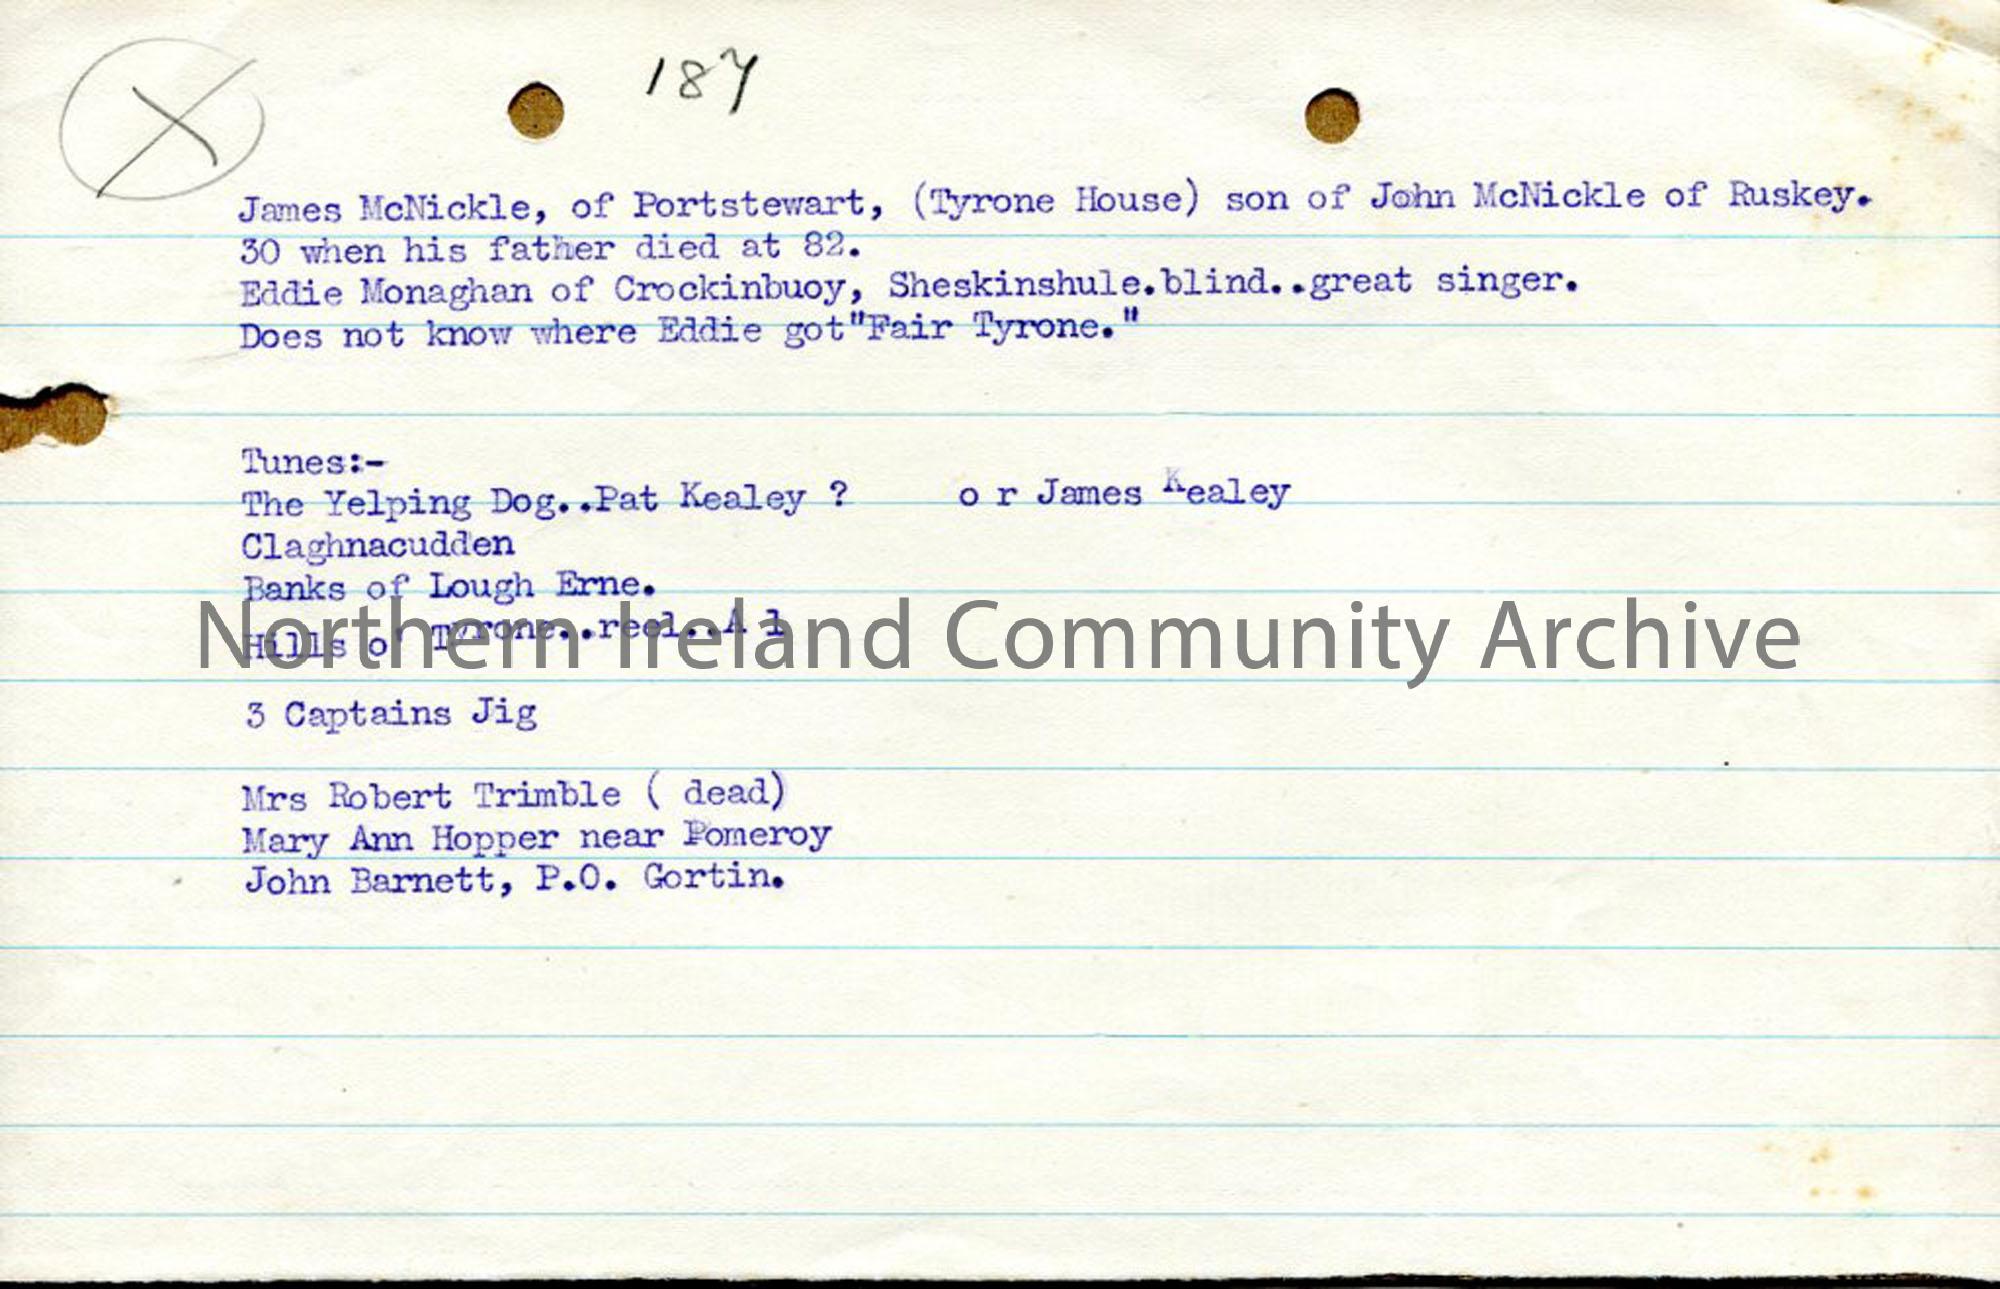 187
James McNickle, of Portstewart, (Tyrone House) son of John McNickle of Ruskey.
30 when his father died at 82.
Eddie Monaghan of Crockinbuoy, Sheskinshule.blind..great singer.
Does not know where Eddie got"Fair Tyrone."
Tunes:-
The Yelping Dog..Pat Kealey ? o r James Kealey
Claghnacudden
Banks of Lough Erne.
Hills o' Tyrone..reel..A 1
Northern Ireland Community Archive
3 Captains Jig
Mrs Robert Trimble ( dead)
Mary Ann Hopper near Pomeroy
John Barnett, P.O. Gortin.